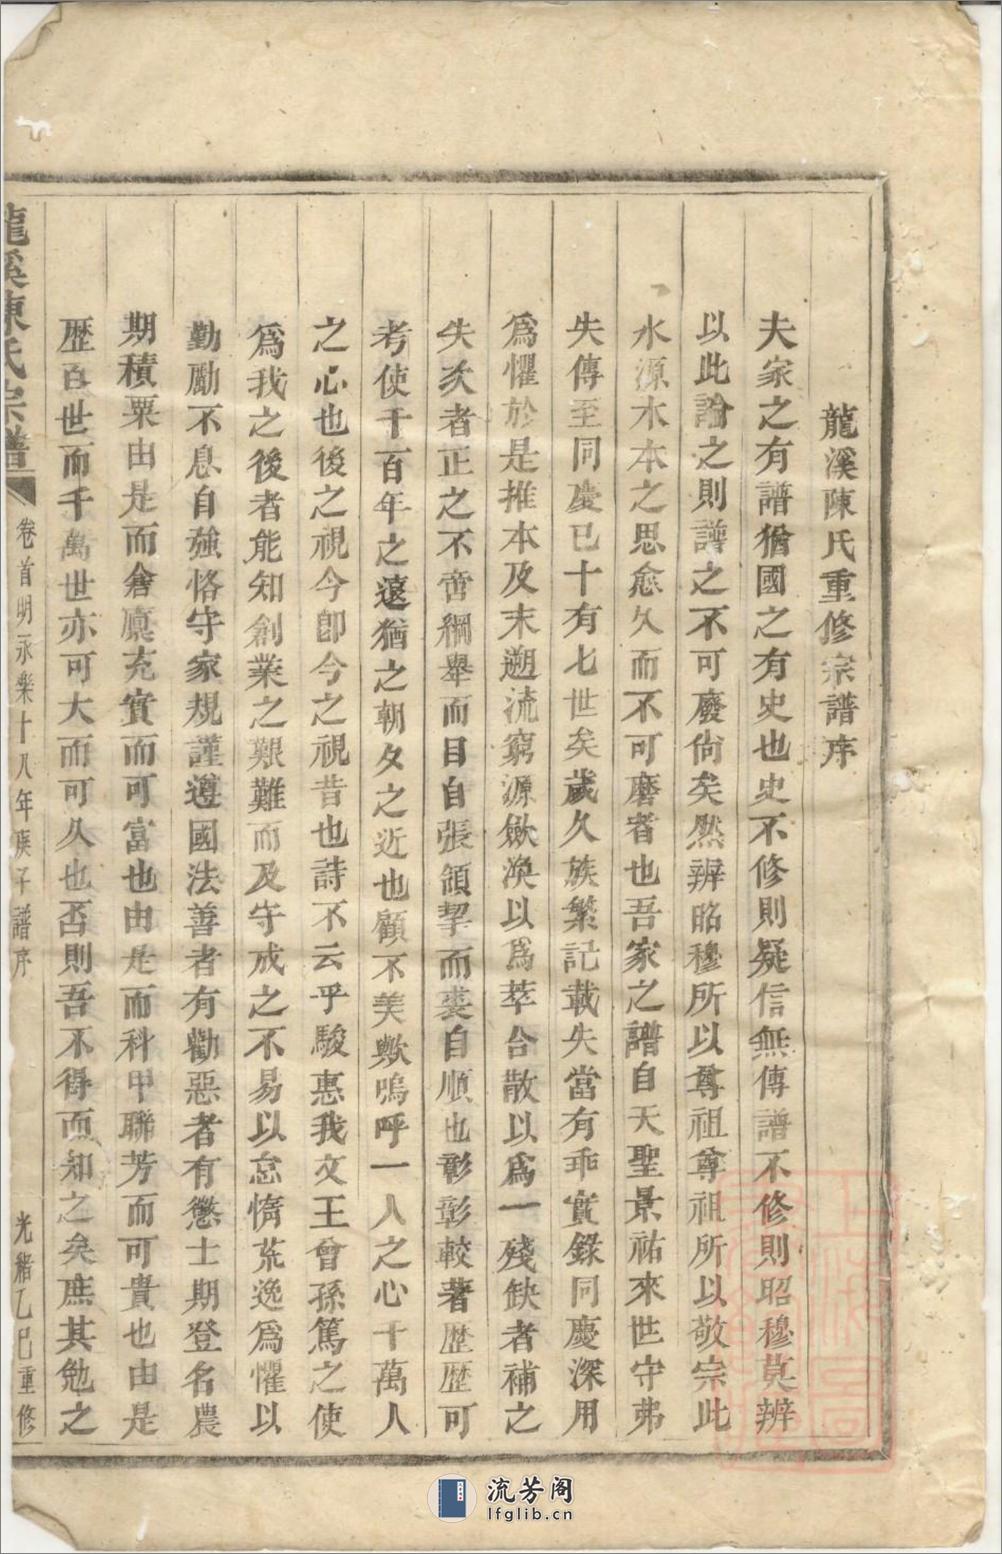 龍溪陳氏重修宗譜序
夫家之有譜猶國之有史也史不修則疑信無傳譜不修則昭穆莫辨
以此論之則譜之不可廢尙矣然辨昭穆所以尊祖尊祖所以敬宗此
水源木本之思愈久而不可磨者也吾家之譜自天聖景祐來世守弗
失傳至同慶已十有七世矣歲久族繁記載失當有乖實錄同慶深用
爲懼於是推本及末遡流窮源歛渙以爲萃合散以爲一殘缺者補之
失次者正之不啻綱舉而目自張領挈而裘自順也彰彰較著歷歷可
考使千百年之遠猶之朝夕之近也顧不美歟嗚呼一人之心千萬人
之心也後之視今卽今之視昔也詩不云乎駿惠我文王曾孫篤之使
爲我之後者能知創業之艱難而及守成之不易以怠惰荒逸爲懼以
勤勵不息自強恪守家規謹遵國法善者有勸惡者有懲士期登名農
期積粟由是而倉廩充實而可富也由是而科甲聯芳而可貴也由是
歷百世而千萬世亦可大而可久也否則吾不得而知之矣庶其勉之
龍溪陳氏宗譜 卷首明永樂十八年族子譜序 光緒乙巳重修
流芳阁
lfglib.cn